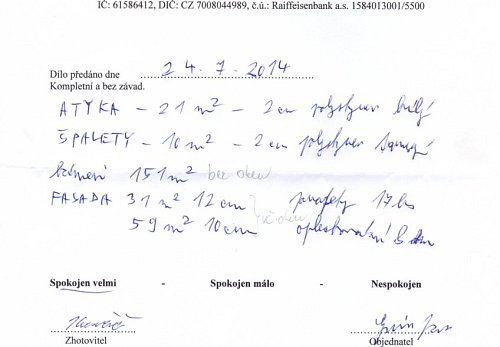 IČ: 61586412, DIČ: CZ 7008044989, č.ú.: Raiffeisenbank a.s. 1584013001/5500
Dílo předáno dne 24.7.2014
Kompletní a bez závad.
ATYKA – 21 m² – 2 cm polystyren bílý
ŠPALETY – 10 m² – 2 cm polystyren
151 m² bez oken
FASADA 31 m² 12 cm parapety 17 ks
59 m² 10 cm vč oken
Spokojen velmi - Spokojen málo - Nespokojen
Zhotovitel Objednatel